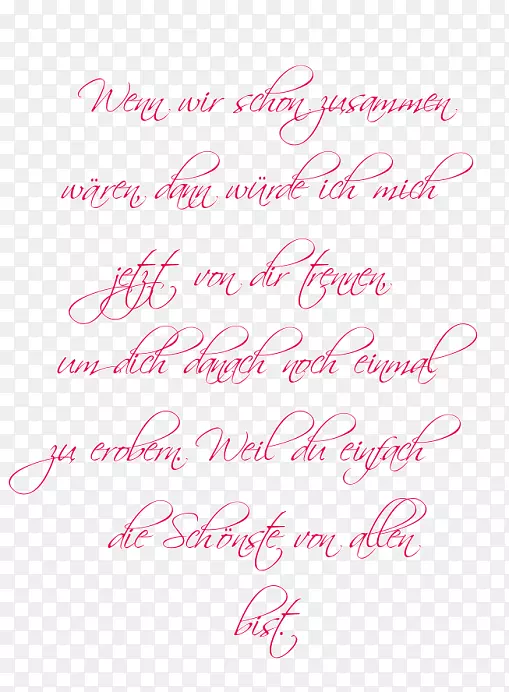 Wenn wir schon zusammen
wären, dann würde ich mich
jetzt von dir trennen,
um dich danach noch einmal
zu erobern. Weil du einfach
die Schönste von allen
bist.